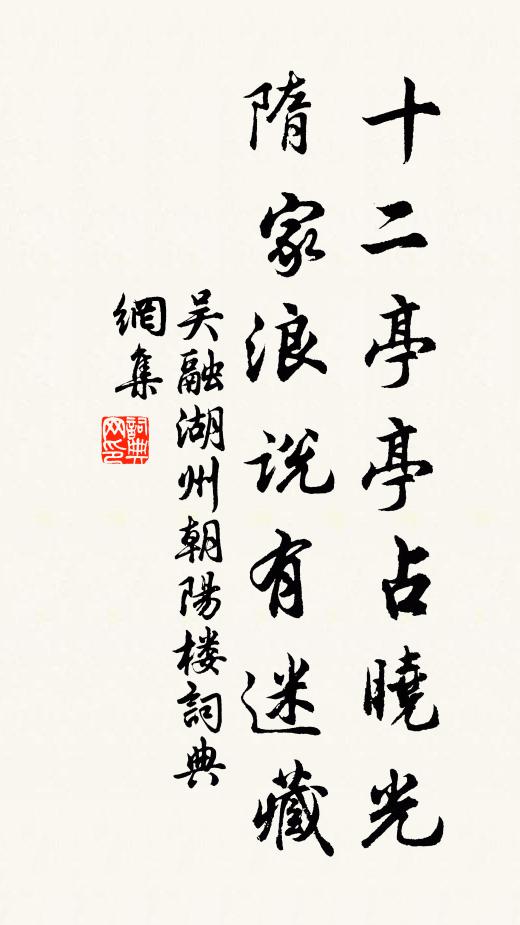 十二亭亭占曉光
隋家浪说有迷藏
吴融湖州朝陽楼詞典
網集
詞典網印